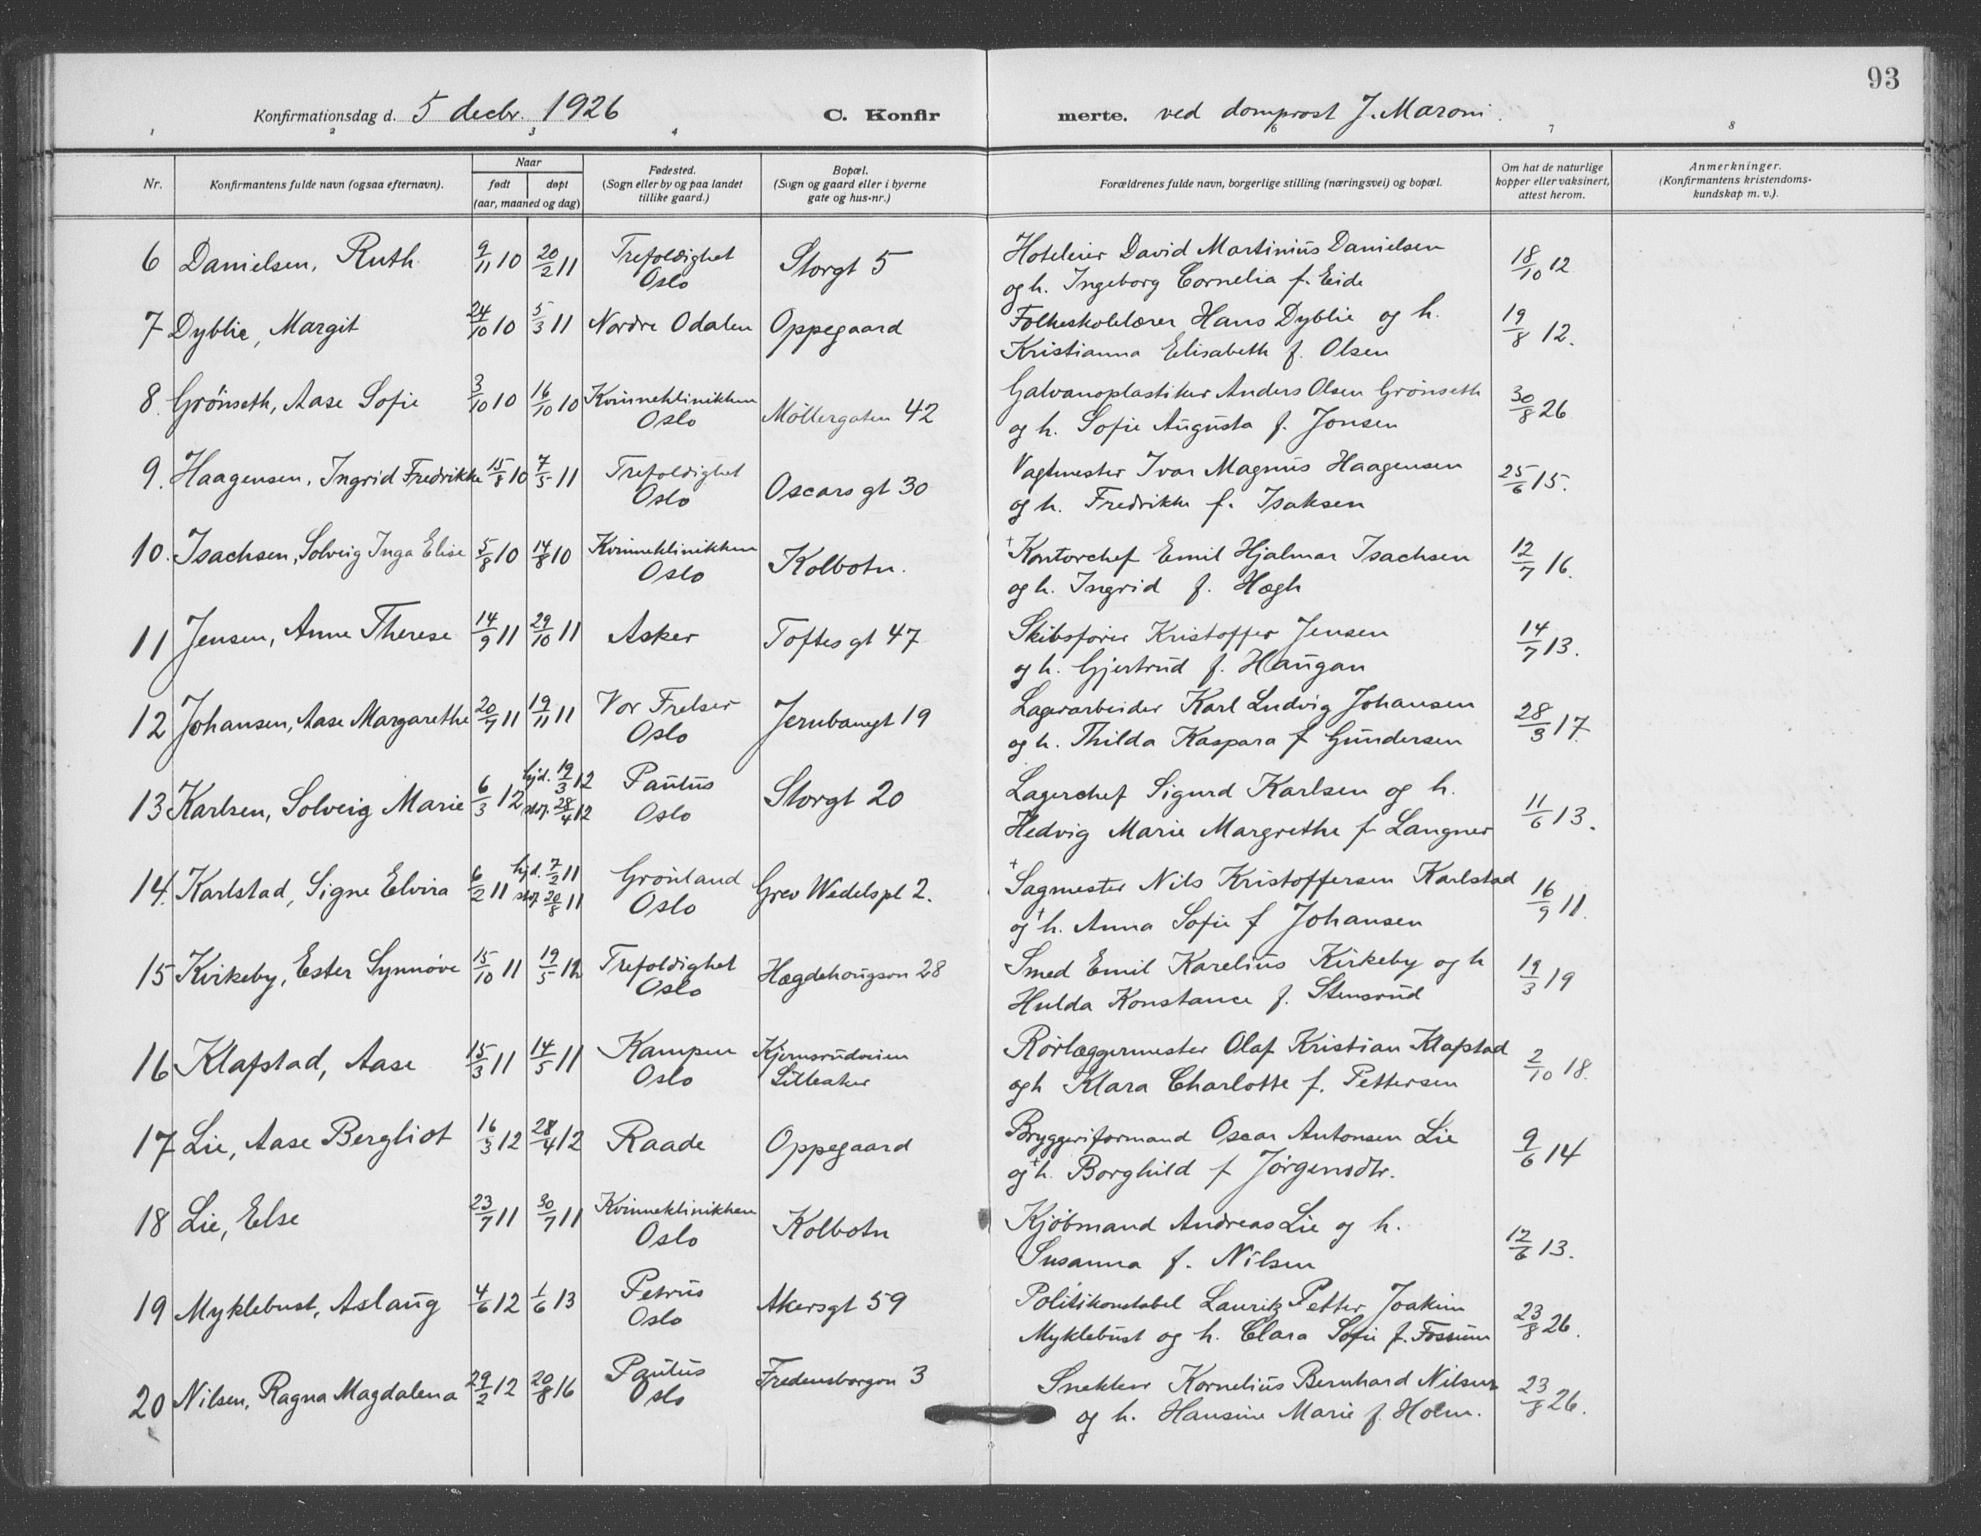 93
Konfirmationsdag d. 5 decbr. 1926 C. Konfirmerte. ved domprost J. Maroni.
1 2 3 4 6 7 8
Nr. Konfirmantens fulde navn (ogsaa efternavn). Naar født døpt (aar, maaned og dag) Fødested. (Sogn eller by og paa landet tillike gaard.) Bopæl. (Sogn og gaard eller i byerne gate og hus-nr.) Forældrenes fulde navn, borgerlige stilling (næringsvei) og bopæl. Om hat de naturlige kopper eller vaksinert, attest herom. Anmerkninger. (Konfirmantens kristendomskundskap m. v.).
6 Danielsen, Ruth 9/11 10 20/2 11 Trefoldighet Oslo Storgt 5 Hoteleier David Martinius Danielsen
og h. Ingeborg Cornelia f. Eide 18/10 12
7 Dyblie, Margit 24/10 10 5/3 11 Nordre Odalen Oppegaard Folkeskolelærer Hans Dyblie og h.
Kristianna Elisabeth f. Olsen 19/8 12.
8. Grönseth, Aase Sofie 3/10 10 16/10 10 Kvinneklinikken Oslo Möllergaten 42 Galvanoplastiker Anders Olsen Grönseth
og h. Sofie Augusta f. Jonsen 30/8 26
9. Haagensen, Ingrid Fredrikke 15/8 10 7/5 11 Trefoldighet Oslo Oscars gt 30 Vagtmester Ivar Magnus Haagensen
og h. Fredrikke f. Isaksen 25/6 15.
10. Isachsen, Solveig Inga Elise 5/8 10 14/8 10 Kvinneklinikken Oslo Kolbotn. + Kontorchef Emil Hjalmar Isachsen
og h. Ingrid f. Høgh 12/7 16.
11 Jensen, Anne Therese 14/9 11 29/10 11 Asker Toftes gt 47 Skibsfører Kristoffer Jensen
og h. Gjertrud f. Haugan 14/7 13.
12 Johansen, Aase Margarethe 20/7 11 19/11 11 Vor Frelser Oslo Jernbanegt 19 Lagerarbeider Karl Ludvig Johansen
og h. Thilda Kaspara f Gundersen 28/3 17.
13 Karlsen, Solveig Marie 6/3 12 hjd. 19/3 12 stdf. 28/4 12 Paulus Oslo Storgt 20 Lagerchef Sigurd Karlsen og h.
Hedvig Marie Margrethe f Langner 11/6 13.
14. Karlstad, Signe Elvira 6/2 11 hjd. 7/2 11 stdf 20/8 11 Grönland Oslo Grev Wedelspl 2. + Sagmester Nils Kristoffersen Karlstad
og + h. Anna Sofie f Johansen 16/9 11.
15 Kirkeby, Ester Synnøve 15/10 11 19/5 12 Trefoldighet Oslo Hægdehougsvn 28 Smed Emil Karelius Kirkeby og h
Hulda Konstance f. Stensrud 19/3 19
16 Klafstad, Aase 15/3 11 14/5 11 Kampen Oslo Kjernsrudveien Lilleaker Rörlæggermester Olaf Kristian Klafstad
og h Klara Charlotte f. Pettersen 2/10 18.
17 Lie, Aase Bergliot 16/3 12 28/4 12 Raade Oppegaard Bryggeriformand Oscar Antonsen Lie
og + h. Borghild f Jørgensdtr. 9/6 14
18 Lie, Else 23/7 11 30/7 11 Kvinneklinikken Oslo Kolbotn Kjöbmand Andreas Lie og h.
Susanna f. Nilsen 12/6 13.
19 Myklebust, Aslaug 4/6 12 1/6 13 Petrus Oslo Akersgt 59 Politikonstabel Lauritz Petter Joakim
Myklebust og h. Clara Sofie f. Fossum 23/8 26.
20 Nilsen, Ragna Magdalena 29/2 12 20/8 16 Paulus Oslo Fredensborgvn 3 Snekker Kornelius Bernhard Nilsen
og h. Hansine Marie f. Holm. 23/8 26.